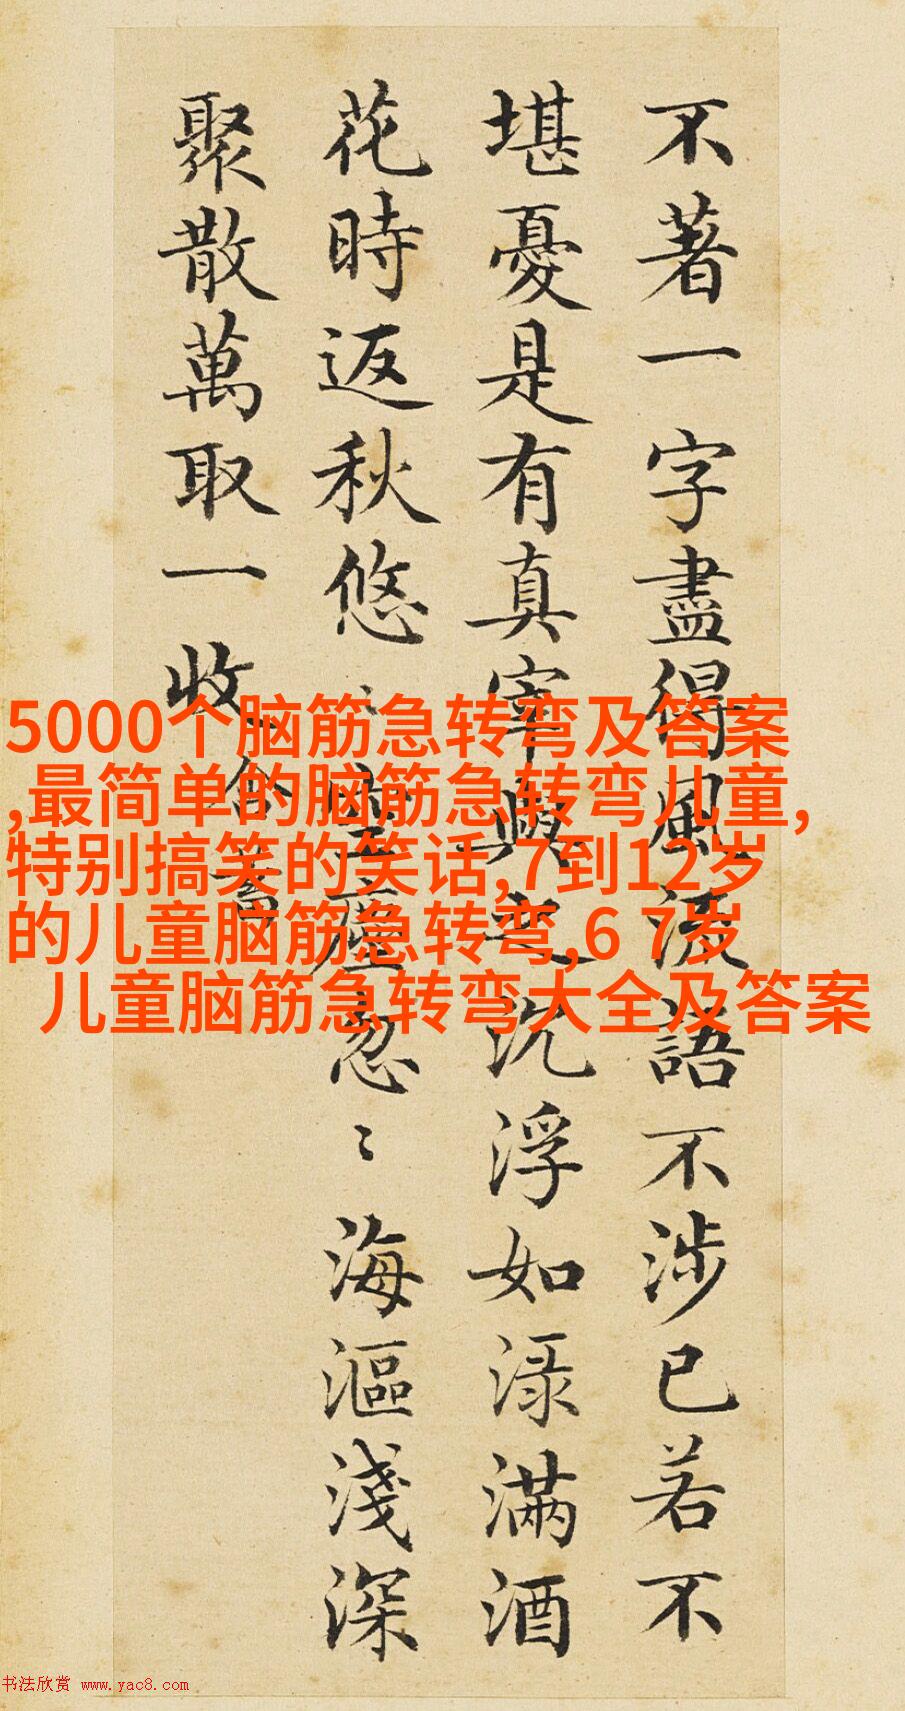 不著一字盡得風流語不涉已若不
堪憂是有真宰與之沉浮如渌滿酒
花時返秋悠〻空塵忽〻海漚淺深
聚散萬取一收
含蓄
5000个脑筋急转弯及答案
,最简单的脑筋急转弯儿童,
特别搞笑的笑话,7到12岁
的儿童脑筋急转弯,6 7岁
儿童脑筋急转弯大全及答案
书法欣赏 www.yac8.com